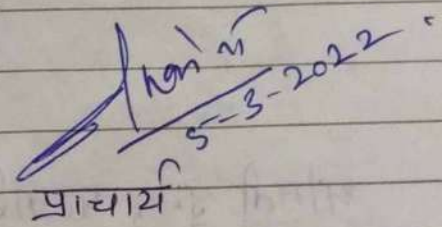 5-3-2022
प्राचार्य